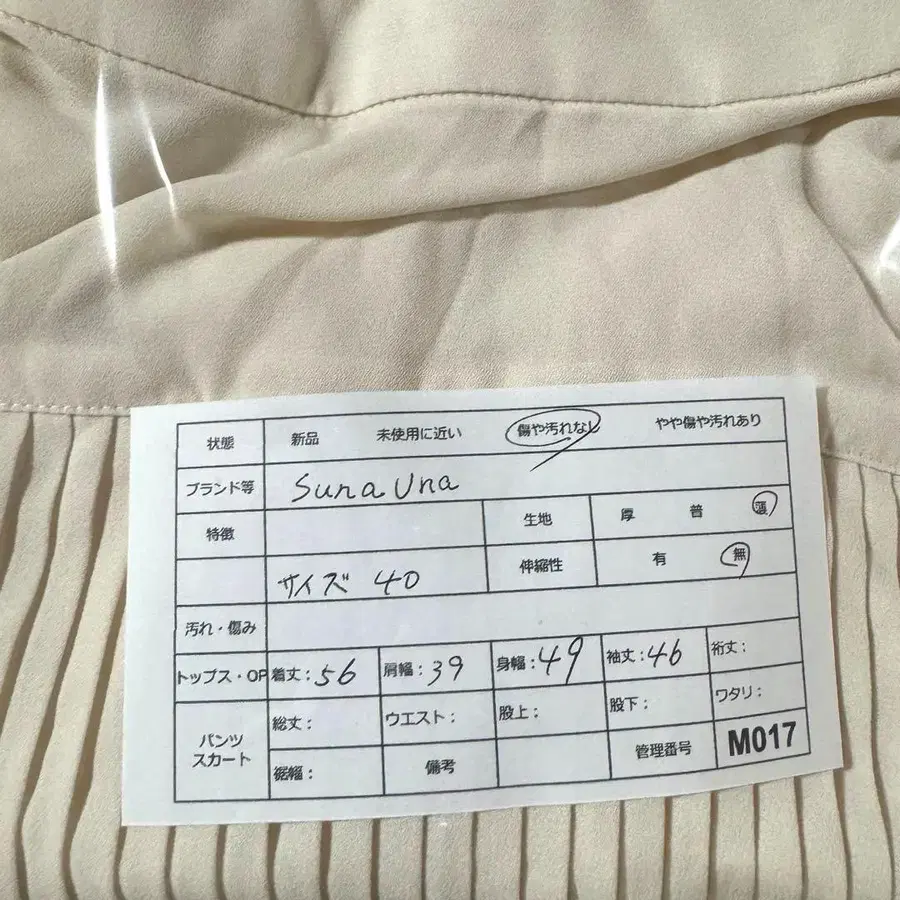 状態 新品 未使用に近い 傷や汚れなし やや傷や汚れあり
ブランド等 Suna Una
特徴 生地 厚 普 薄
サイズ 40 伸縮性 有 無
汚れ・傷み
トップス・OP 着丈：56 肩幅：39 身幅：49 袖丈：46 裄丈：
パンツ スカート 総丈： ウエスト： 股上： 股下： ワタリ：
裾幅： 備考 管理番号 M017